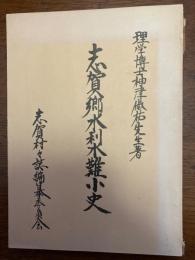 理学博士神津俶祐先生著
志賀郷水利水難小史
志賀村々誌編纂委員会